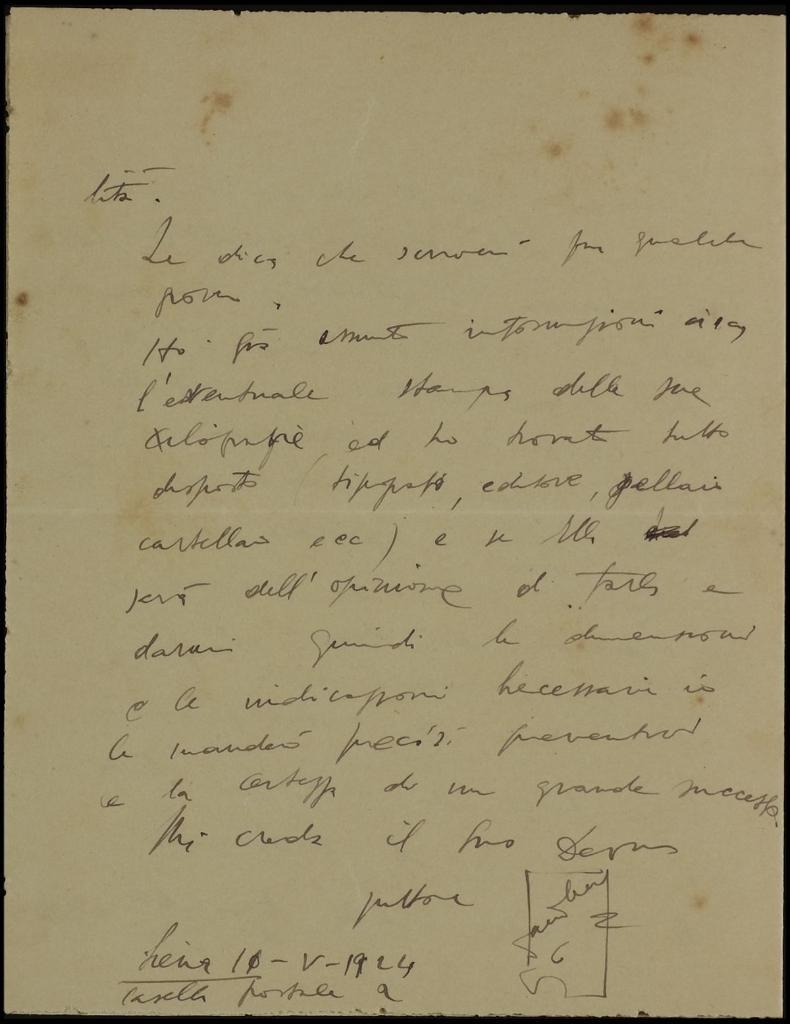 lità.
Le dica che scriverò fra qualche
giorno.
Ho già assunto informazioni circa
l'eventuale stampa delle sue
xilografie ed ho trovato tutto
disposto (tipografo, editore, pellaio
cartellaio ecc) e se Ella
sarà dell'opinione di farlo e
darmi quindi le dimensioni
e le indicazioni necessarie io
le manderò precisi preventivi
e la certezza di un grande successo.
Mi creda il suo Devmo
pittore
10-V-1924
Casella postale 2